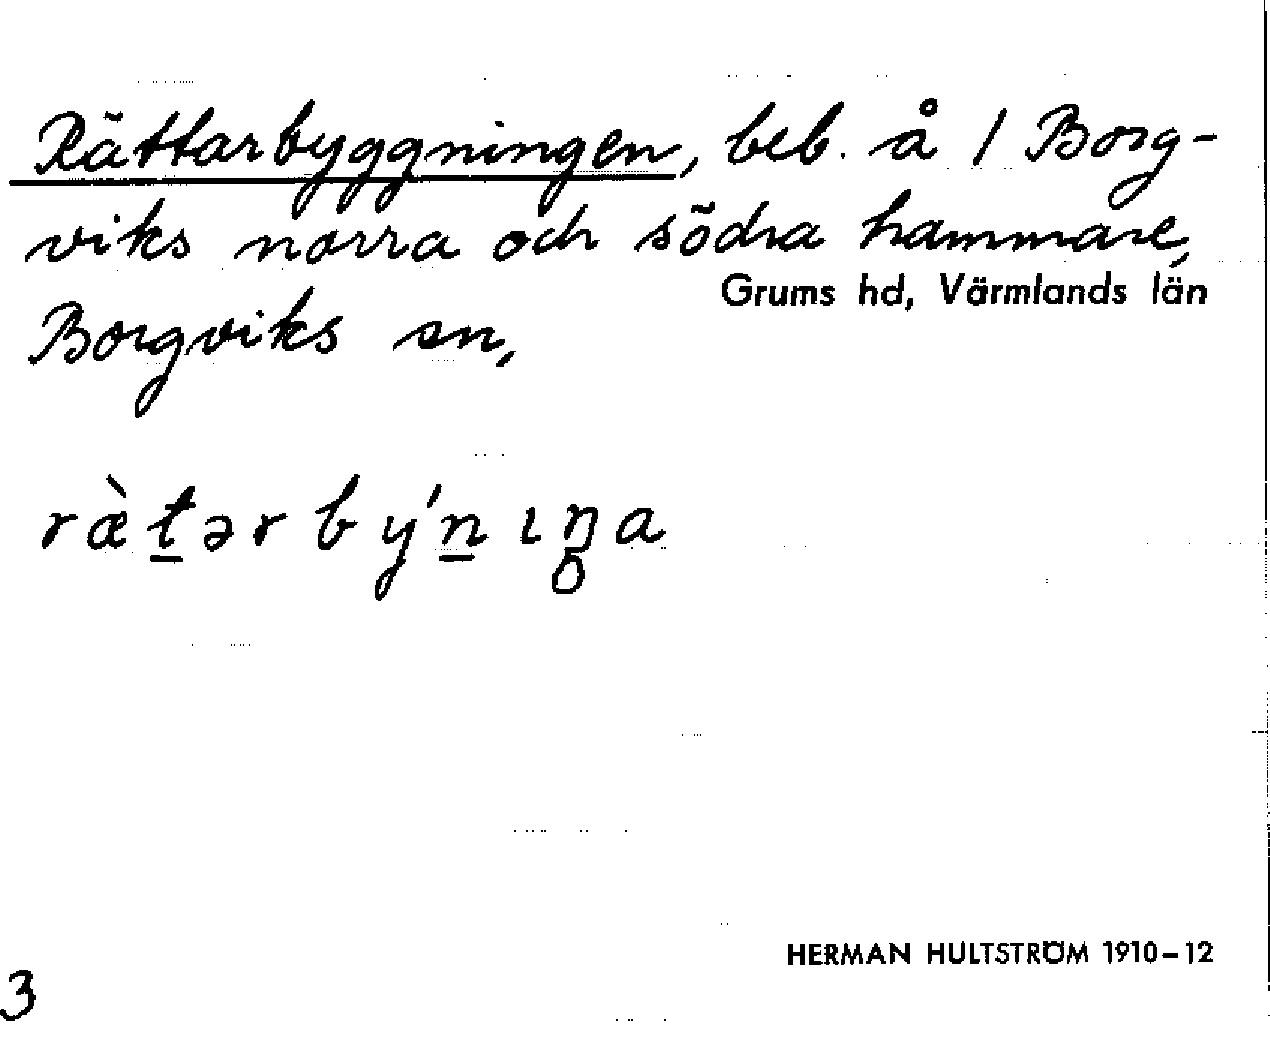 Rättarbyggningen, beb. å 1 Borg-
viks norra och södra hammare,
Grums hd, Värmlands län
Borgviks sn,
ræ̀t̲ərbýn̲ıŋ̥a
HERMAN HULTSTRÖM 1910–12
3